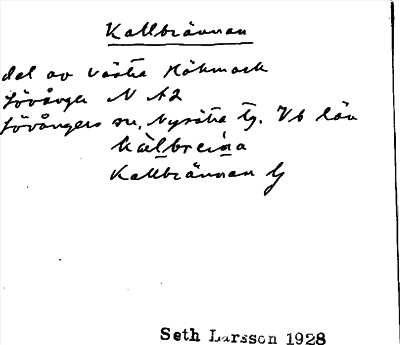 Kallbrännan
del av västra Hökmark
Lövånger N A2
Lövångers sn, Nysätra tg. Vb län
Kallbrännan G
Seth Larsson 1928